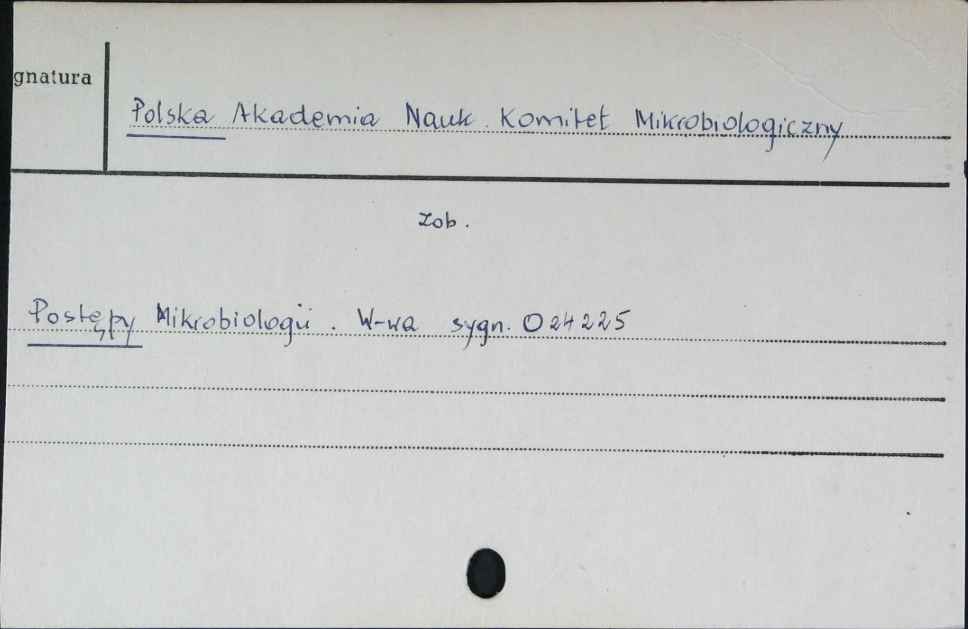 gnatura
Polska Akademia Nauk. Komitet Mikrobiologiczny
Zob.
Postępy Mikrobiologii. W-wa sygn. O 24225